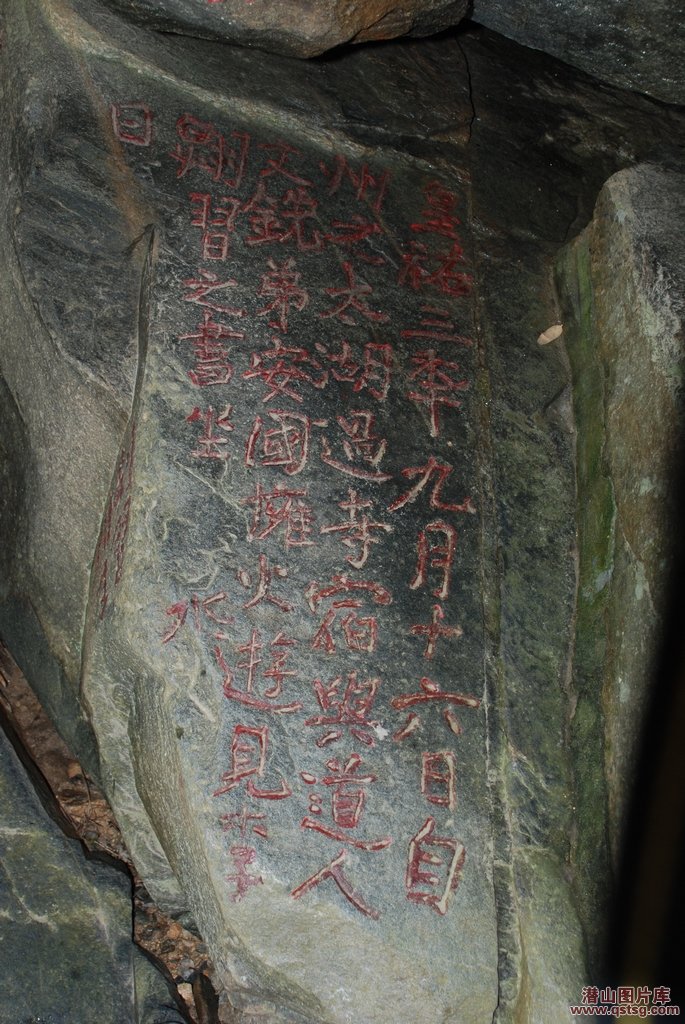 皇祐三年九月十六日自
州之太湖過寺宿與道人
文銑弟安國擁火遊見
翺習之書坐
水
日
潜山图片库
www.qstsg.com